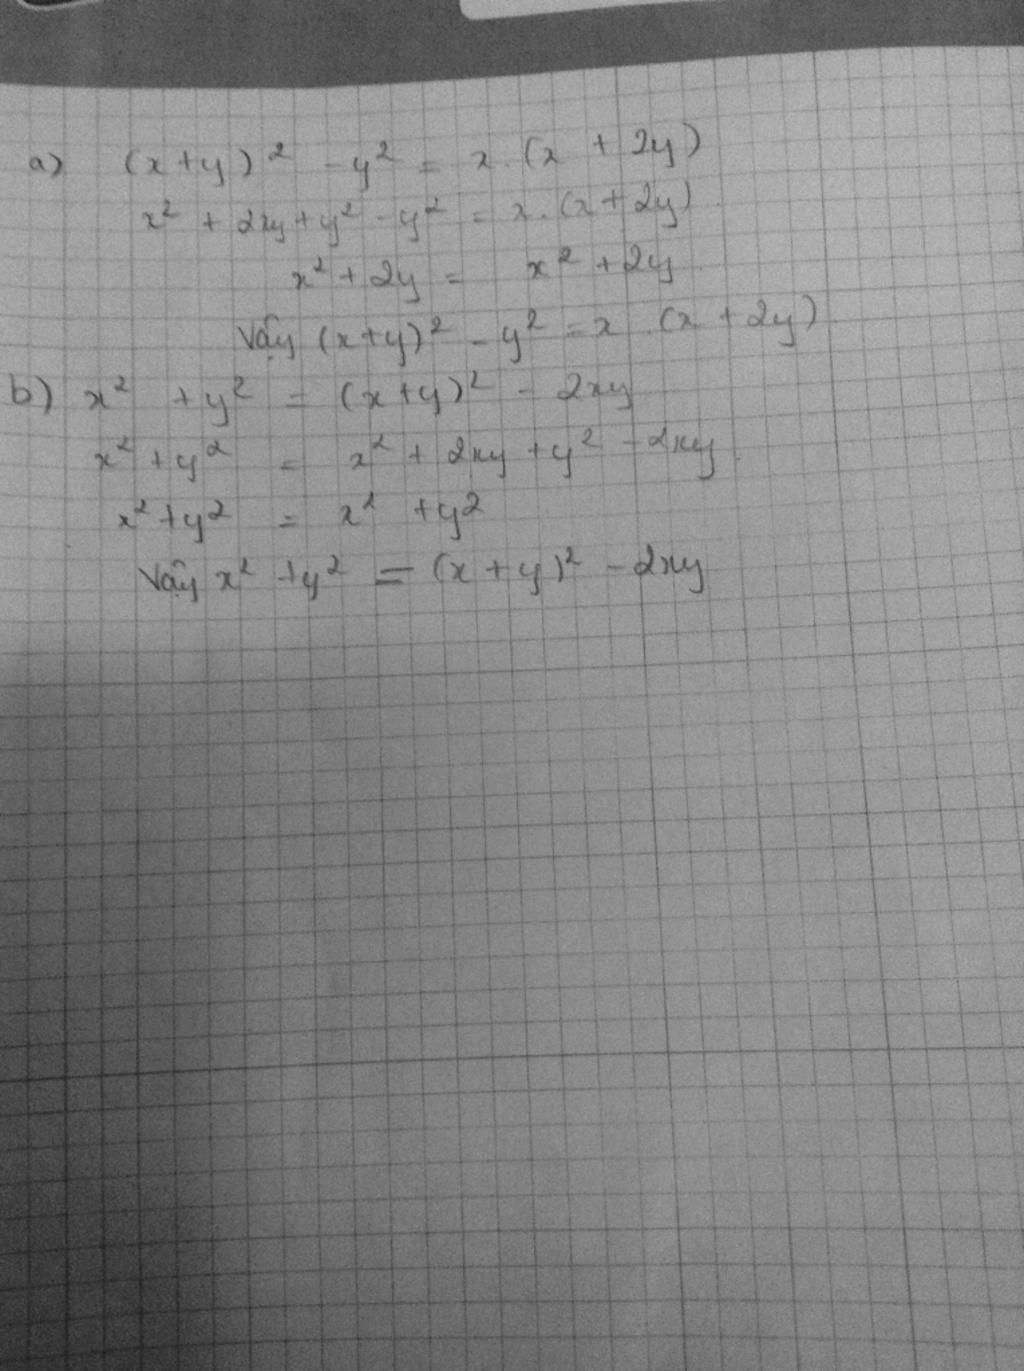 a) (x+y)² - y² = x.(x + 2y)
x² + 2xy + y² - y² = x.(x + 2y)
x² + 2y = x² + 2y
Vậy (x+y)² - y² = x.(x + 2y)
b) x² + y² = (x+y)² - 2xy
x² + y² = x² + 2xy + y² - 2xy.
x² + y² = x² + y²
Vậy x² + y² = (x+y)² - 2xy